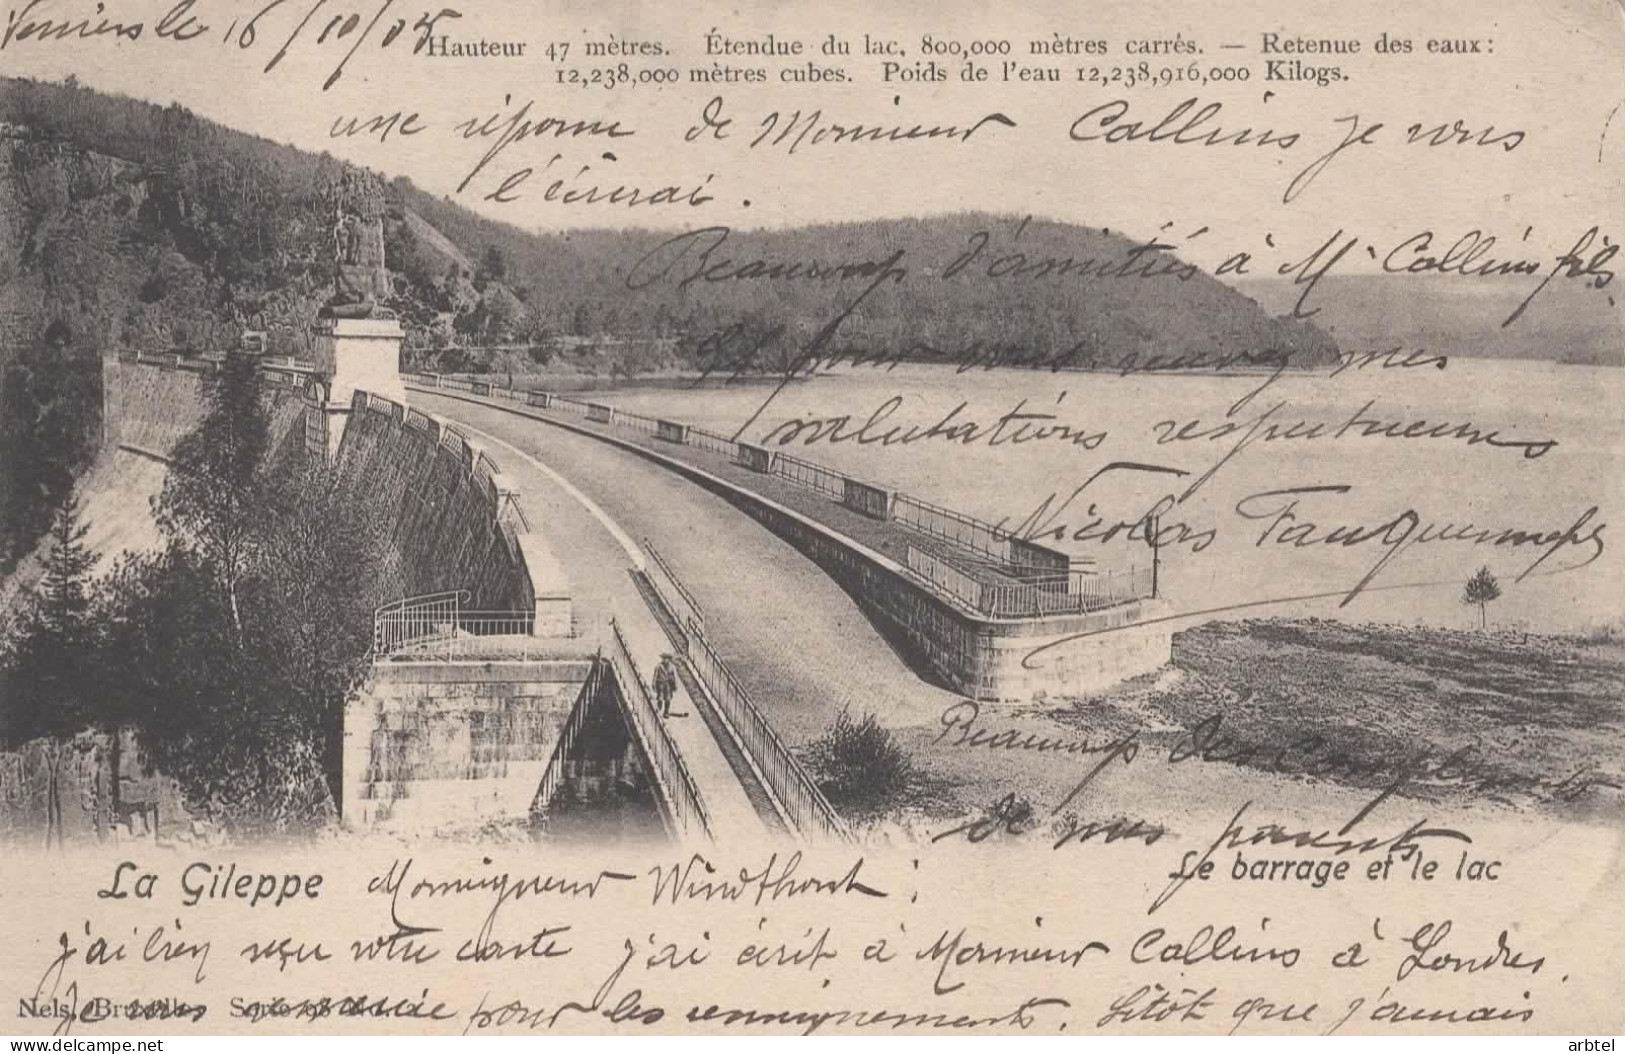 Verviers le 16/10/05
Hauteur 47 mètres. Étendue du lac, 800,000 mètres carrés. — Retenue des eaux:
12,238,000 mètres cubes. Poids de l'eau 12,238,916,000 Kilogs.
une réponse de Monsieur Collins je vous
l'écrirai.
Beaucoup d'amitiés à Mr Collins fils
Et pour vous recevez mes
salutations respectueuses
Nicolas
Beaucoup des Compliments
de mes parents
La Gileppe
Le barrage et le lac
Monseigneur Windthorst;
j'ai bien reçu votre carte j'ai écrit à Monsieur Collins à Londres.
Nels, Bruxelles Serie 98 No.
Je vous remercie pour les renseignements. Sitôt que j'aurais
delcampe.net
arbtel